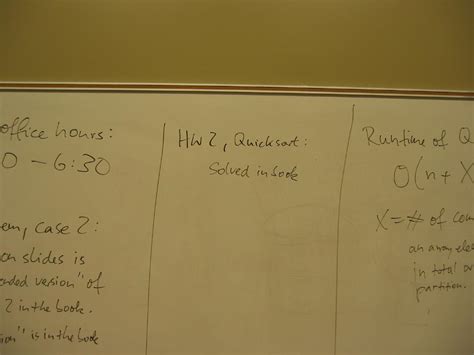 office hours:
0 - 6:30
em, case 2:
on slides is
nded version" of
2 in the book.
sion" is in the book
HW2, Quicksort:
Solved in book
Runtime of Q
O(n+X
X = # of com
an array ele
in total ov
partition.